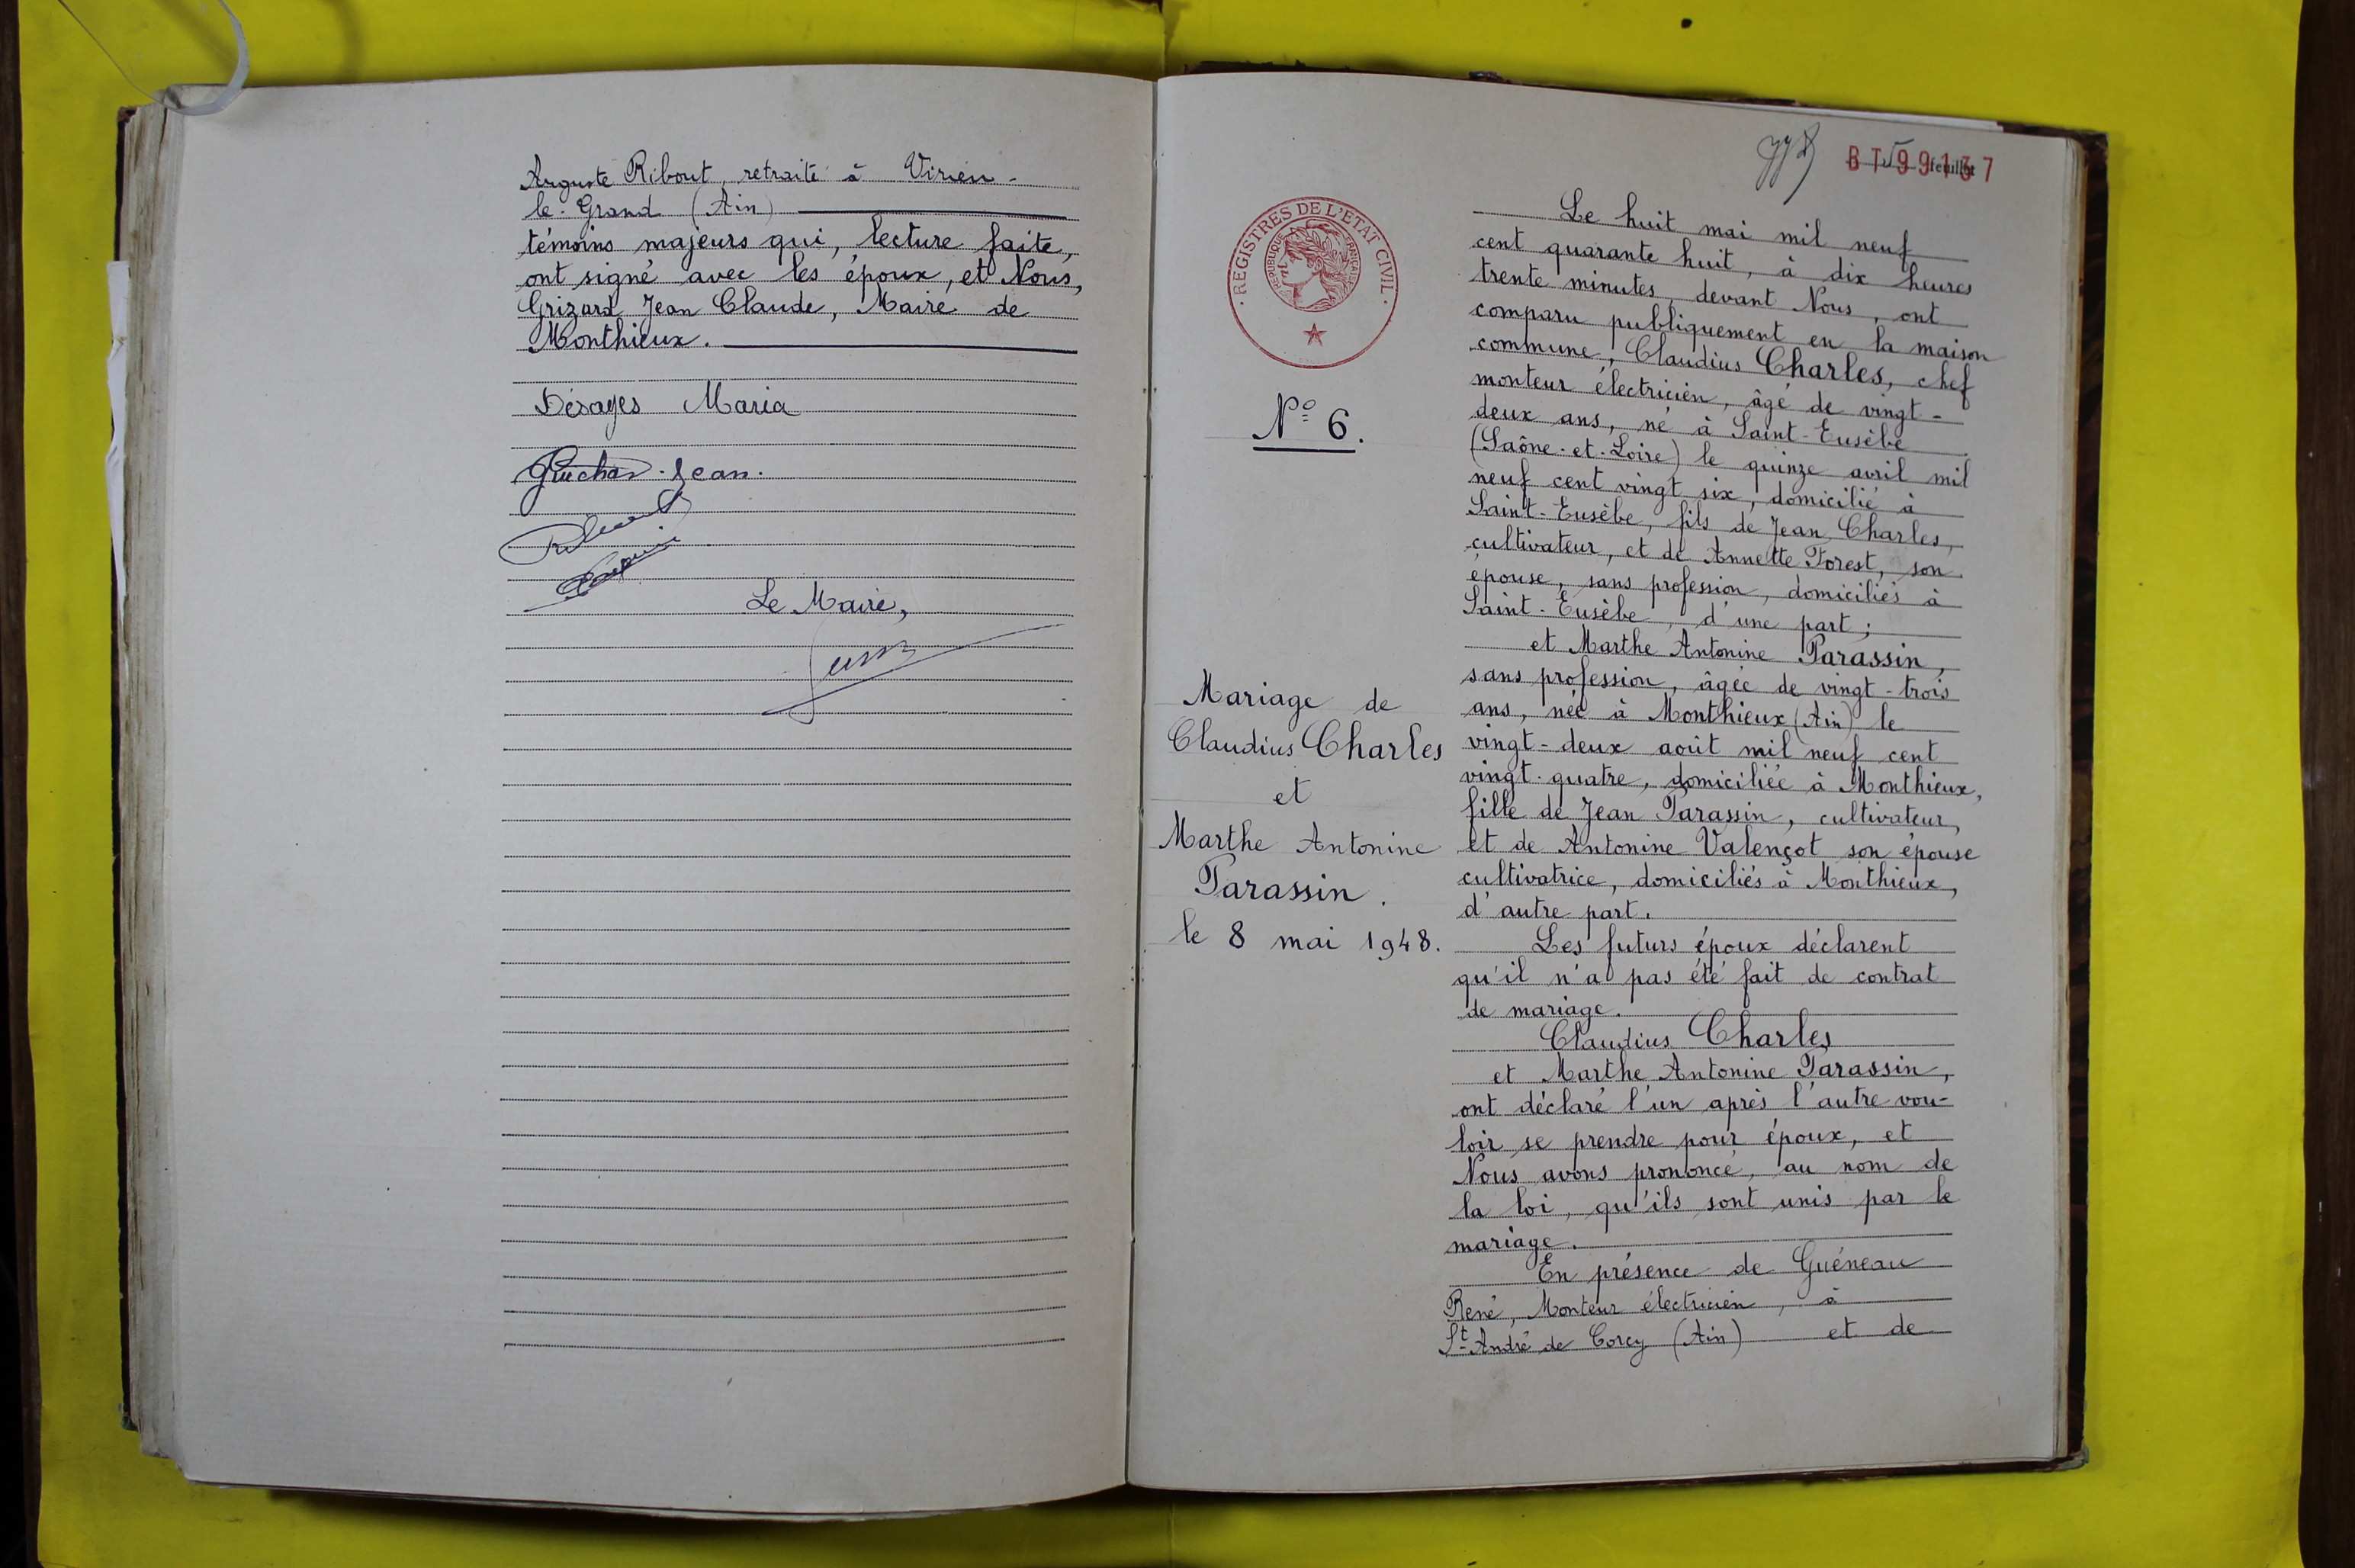 Auguste Ribout, retraité à Virieu-
le-Grand (Ain)
témoins majeurs qui, lecture faite,
ont signé avec les époux, et Nous,
Grizard Jean Claude, Maire de
Monthieux.
Désages Maria
Jean.
Le Maire,
BT 99137
feuillet
REGISTRES DE L'ETAT CIVIL
REPUBLIQUE FRANÇAISE
N° 6.
Mariage de
Claudius Charles
et
Marthe Antonine
Parassin.
le 8 mai 1948.
Le huit mai mil neuf
cent quarante huit, à dix heures
trente minutes, devant Nous, ont
comparu publiquement en la maison
commune, Claudius Charles, chef
monteur électricien, âgé de vingt-
deux ans, né à Saint-Eusèbe
(Saône-et-Loire) le quinze avril mil
neuf cent vingt six, domicilié à
Saint-Eusèbe, fils de Jean Charles,
cultivateur, et de Annette Forest, son
épouse, sans profession, domiciliés à
Saint-Eusèbe, d'une part;
et Marthe Antonine Parassin,
sans profession, âgée de vingt-trois
ans, née à Monthieux (Ain) le
vingt-deux août mil neuf cent
vingt-quatre, domiciliée à Monthieux,
fille de Jean Parassin, cultivateur,
et de Antonine Valençot son épouse
cultivatrice, domiciliés à Monthieux,
d'autre part.
Les futurs époux déclarent
qu'il n'a pas été fait de contrat
de mariage.
Claudius Charles
et Marthe Antonine Parassin,
ont déclaré l'un après l'autre vou-
loir se prendre pour époux, et
Nous avons prononcé, au nom de
la loi, qu'ils sont unis par le
mariage.
En présence de Guéneau
René, Monteur électricien, à
St André de Corcy (Ain) et de